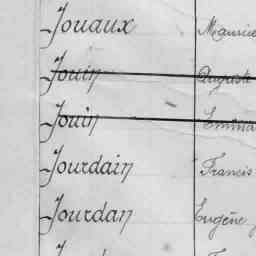 Jouaux Maurice
Jouin Auguste
Jouin
Jourdain Francis
Jourdan Eugène